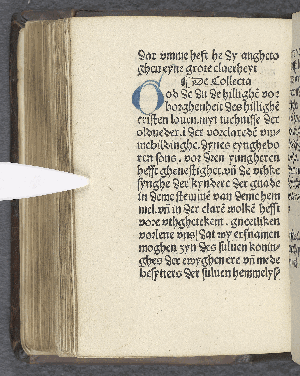 dar vmme heft he dy angheto
ghen eyne grote claerheyt
De Collecta
God de du de hillighē vor
borghenheit des hillighē
cristen louen myt tuchnisse der
oldveder. i der vorclarede vnn
inebildinghe. dynes eynghebo
ren sons. vor den yungheren
hefft ghevestighet. vn̄ de
synghe der kyndere der gnade
in deme stemme van deme hem
mel. vn̄ in der clarē wolkē hefft
vore vthghetekent. gnediken
vorlene vns dat wy ersnamen
moghen zyn des suluen konin
ghes der ewyghen ere vn̄ mede
besytters der suluen hemmelys